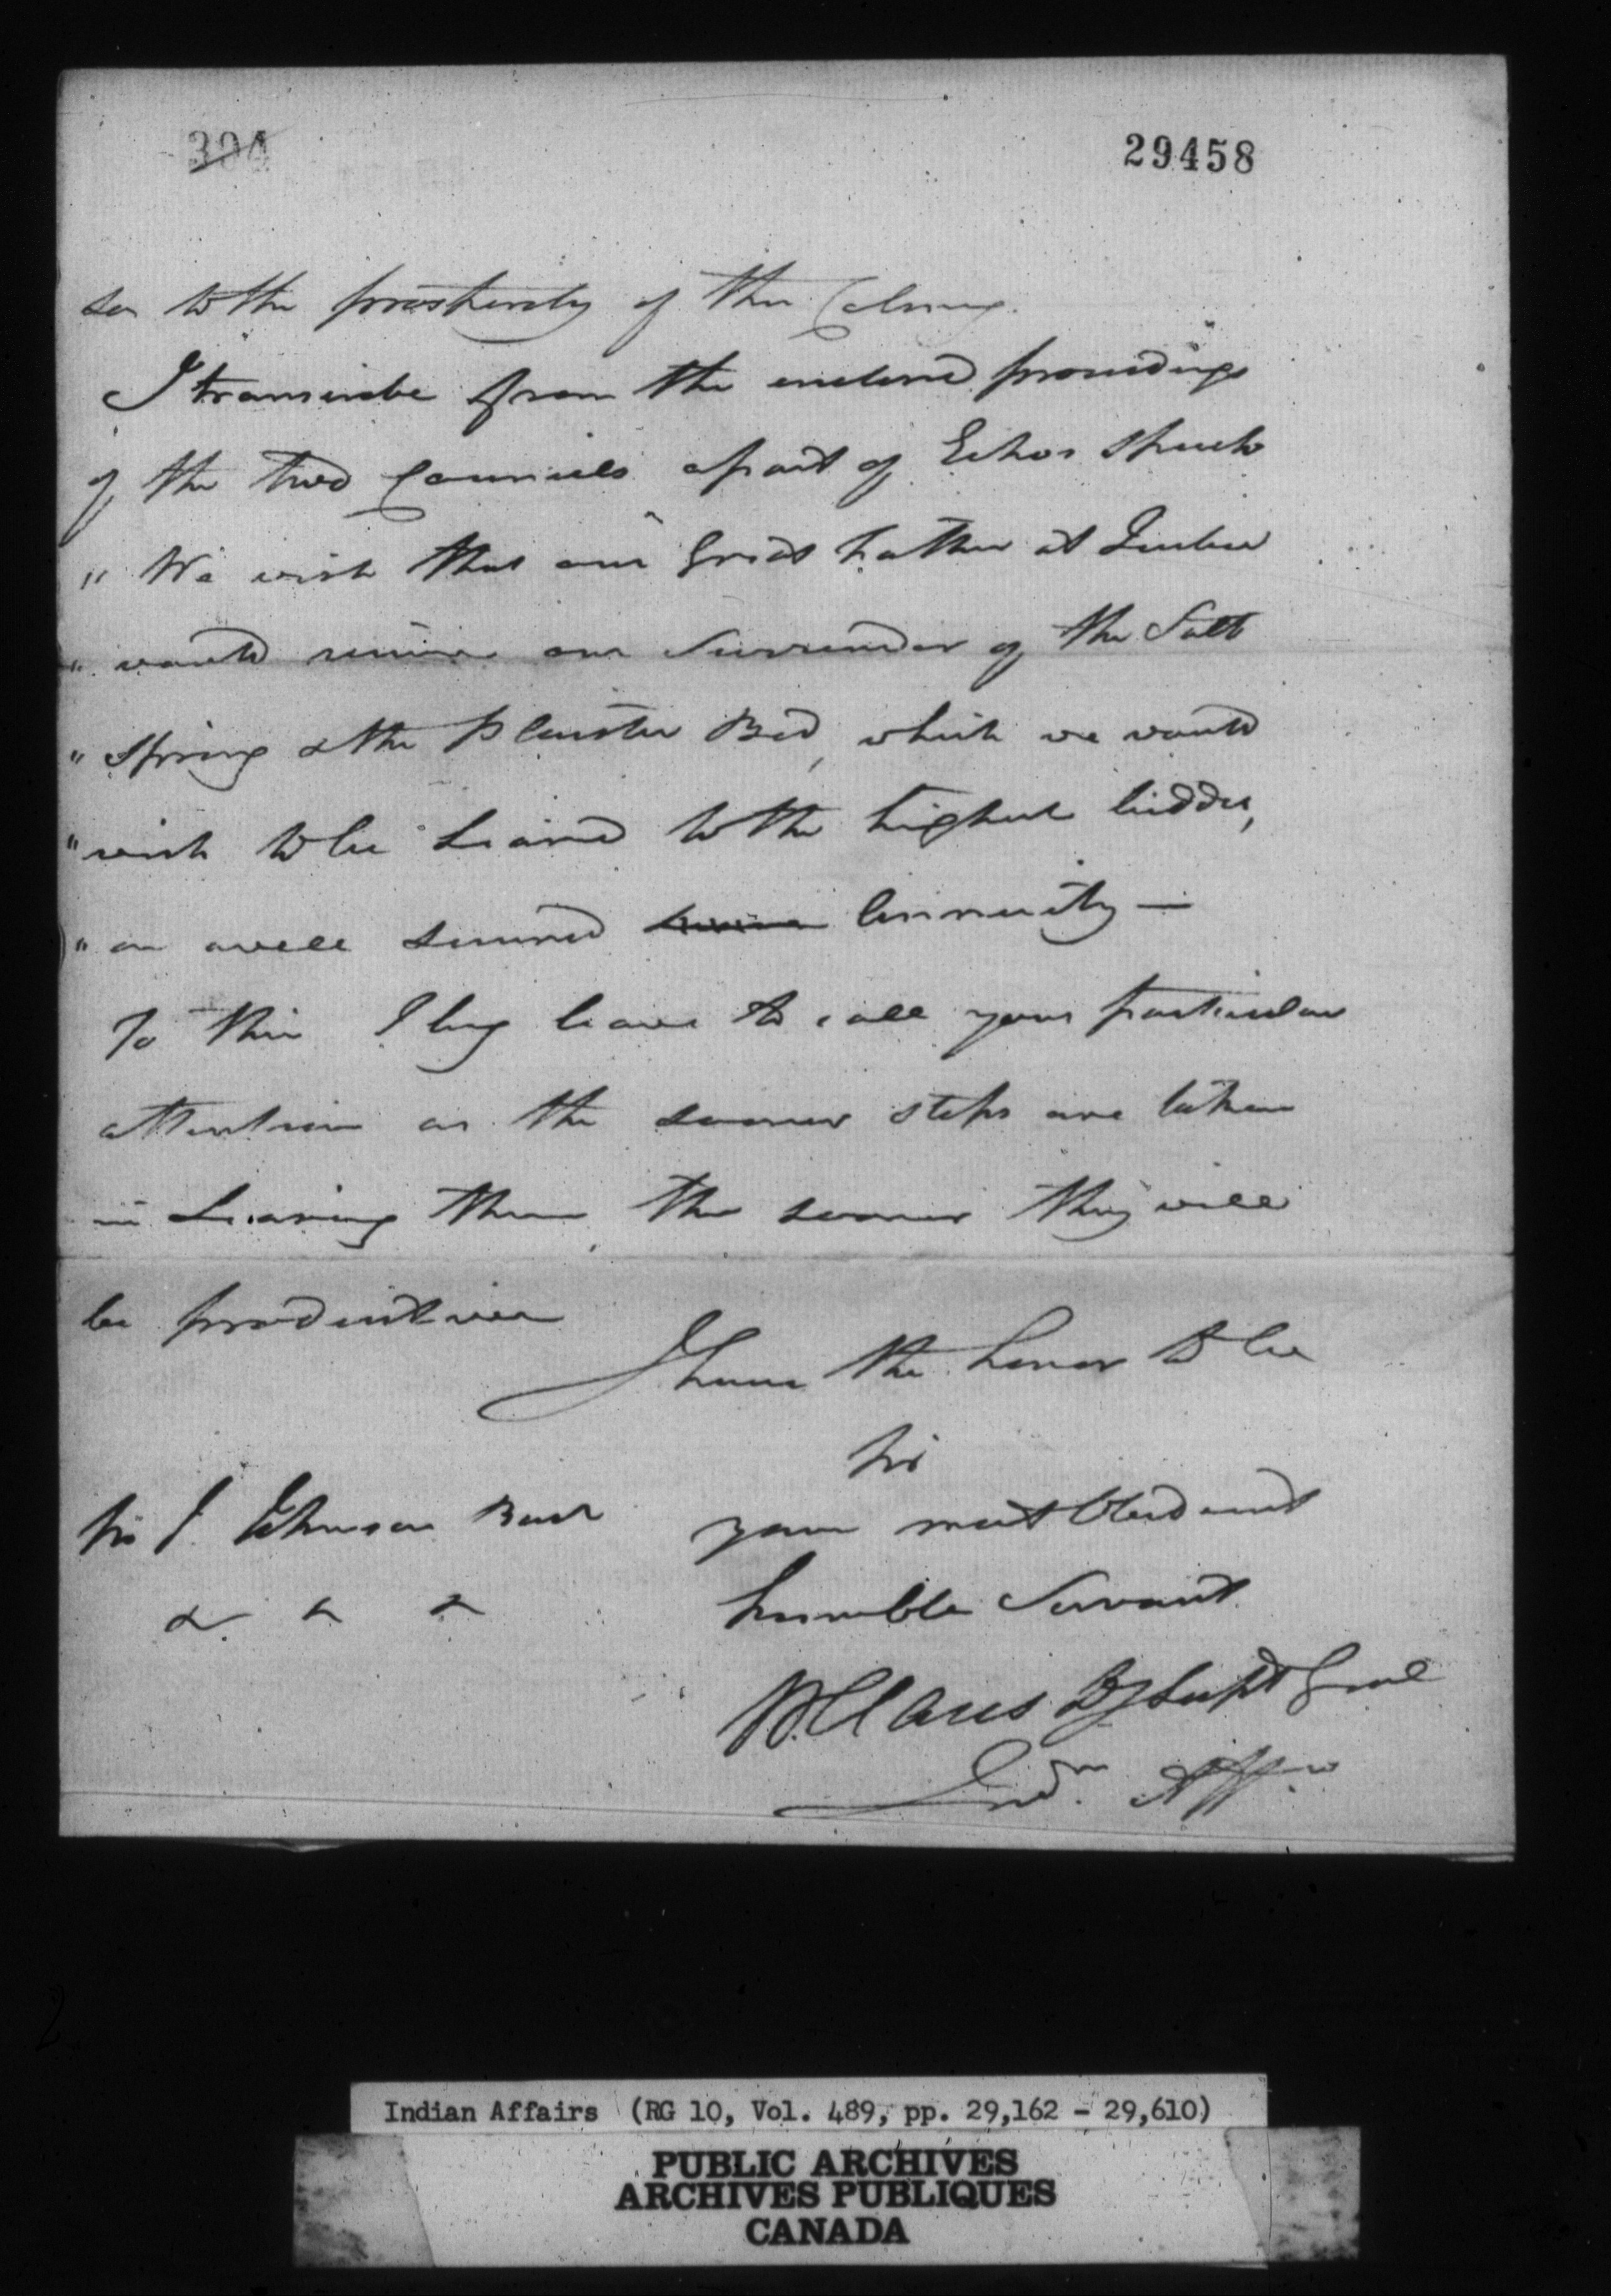 304
29458
so to the prosperity of the Colony.
I transcribe from the enclosed proceedings
of the two Councils a part of Echos Speech
" We wish that our Great Father at Quebec
" would receive our Surrender of the Salt
" Spring & the Plaister Bed, which we would
" wish to be Leased to the highest bidder,
" on a well secured Annuity —
To this I beg leave to call your particular
attention as the sooner steps are taken
in Leasing them, the sooner they will
be productive
I have the honor to be
Sir
Sir J. Johnson Bart
your most Obedient
& & &
humble Servant
W Claus Dy Supt Genl
Indn. Affrs
Indian Affairs (RG 10, Vol. 489, pp. 29,162 - 29,610)
PUBLIC ARCHIVES
ARCHIVES PUBLIQUES
CANADA